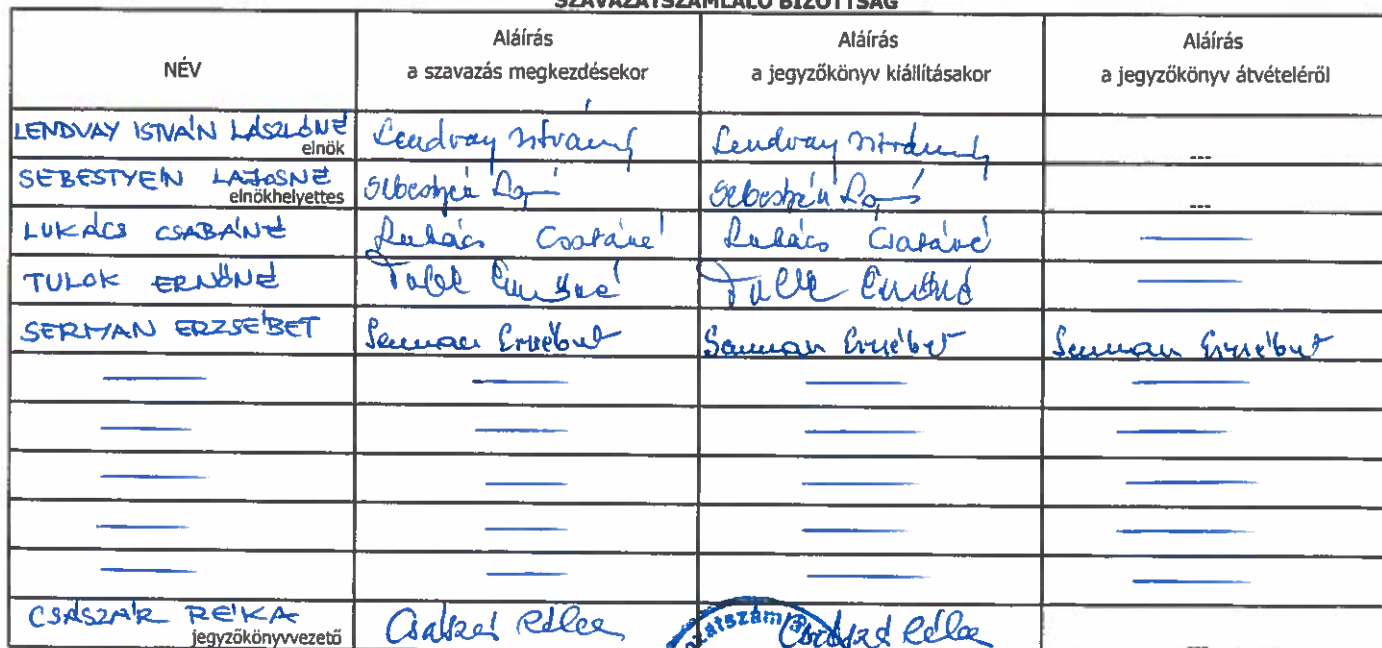 SZAVAZATSZÁMLÁLÓ BIZOTTSÁG
NÉV
Aláírás
a szavazás megkezdésekor
Aláírás
a jegyzőkönyv kiállításakor
Aláírás
a jegyzőkönyv átvételéről
LENDVAY ISTVÁN LÁSZLÓNÉ
elnök
Lendvay Istvánné
Lendvay Istvánné
---
SEBESTYÉN LAJOSNÉ
elnökhelyettes
Sebestyén
Sebestyén
---
LUKÁCS CSABÁNÉ
Lukács Csabáné
Lukács Csabáné
TULOK ERNŐNÉ
Tulok Ernőné
Tulok Ernőné
SERMAN ERZSÉBET
Serman Erzsébet
Serman Erzsébet
Serman Erzsébet
CSÁSZÁR RÉKA
jegyzőkönyvvezető
Császár Réka
Császár Réka
---